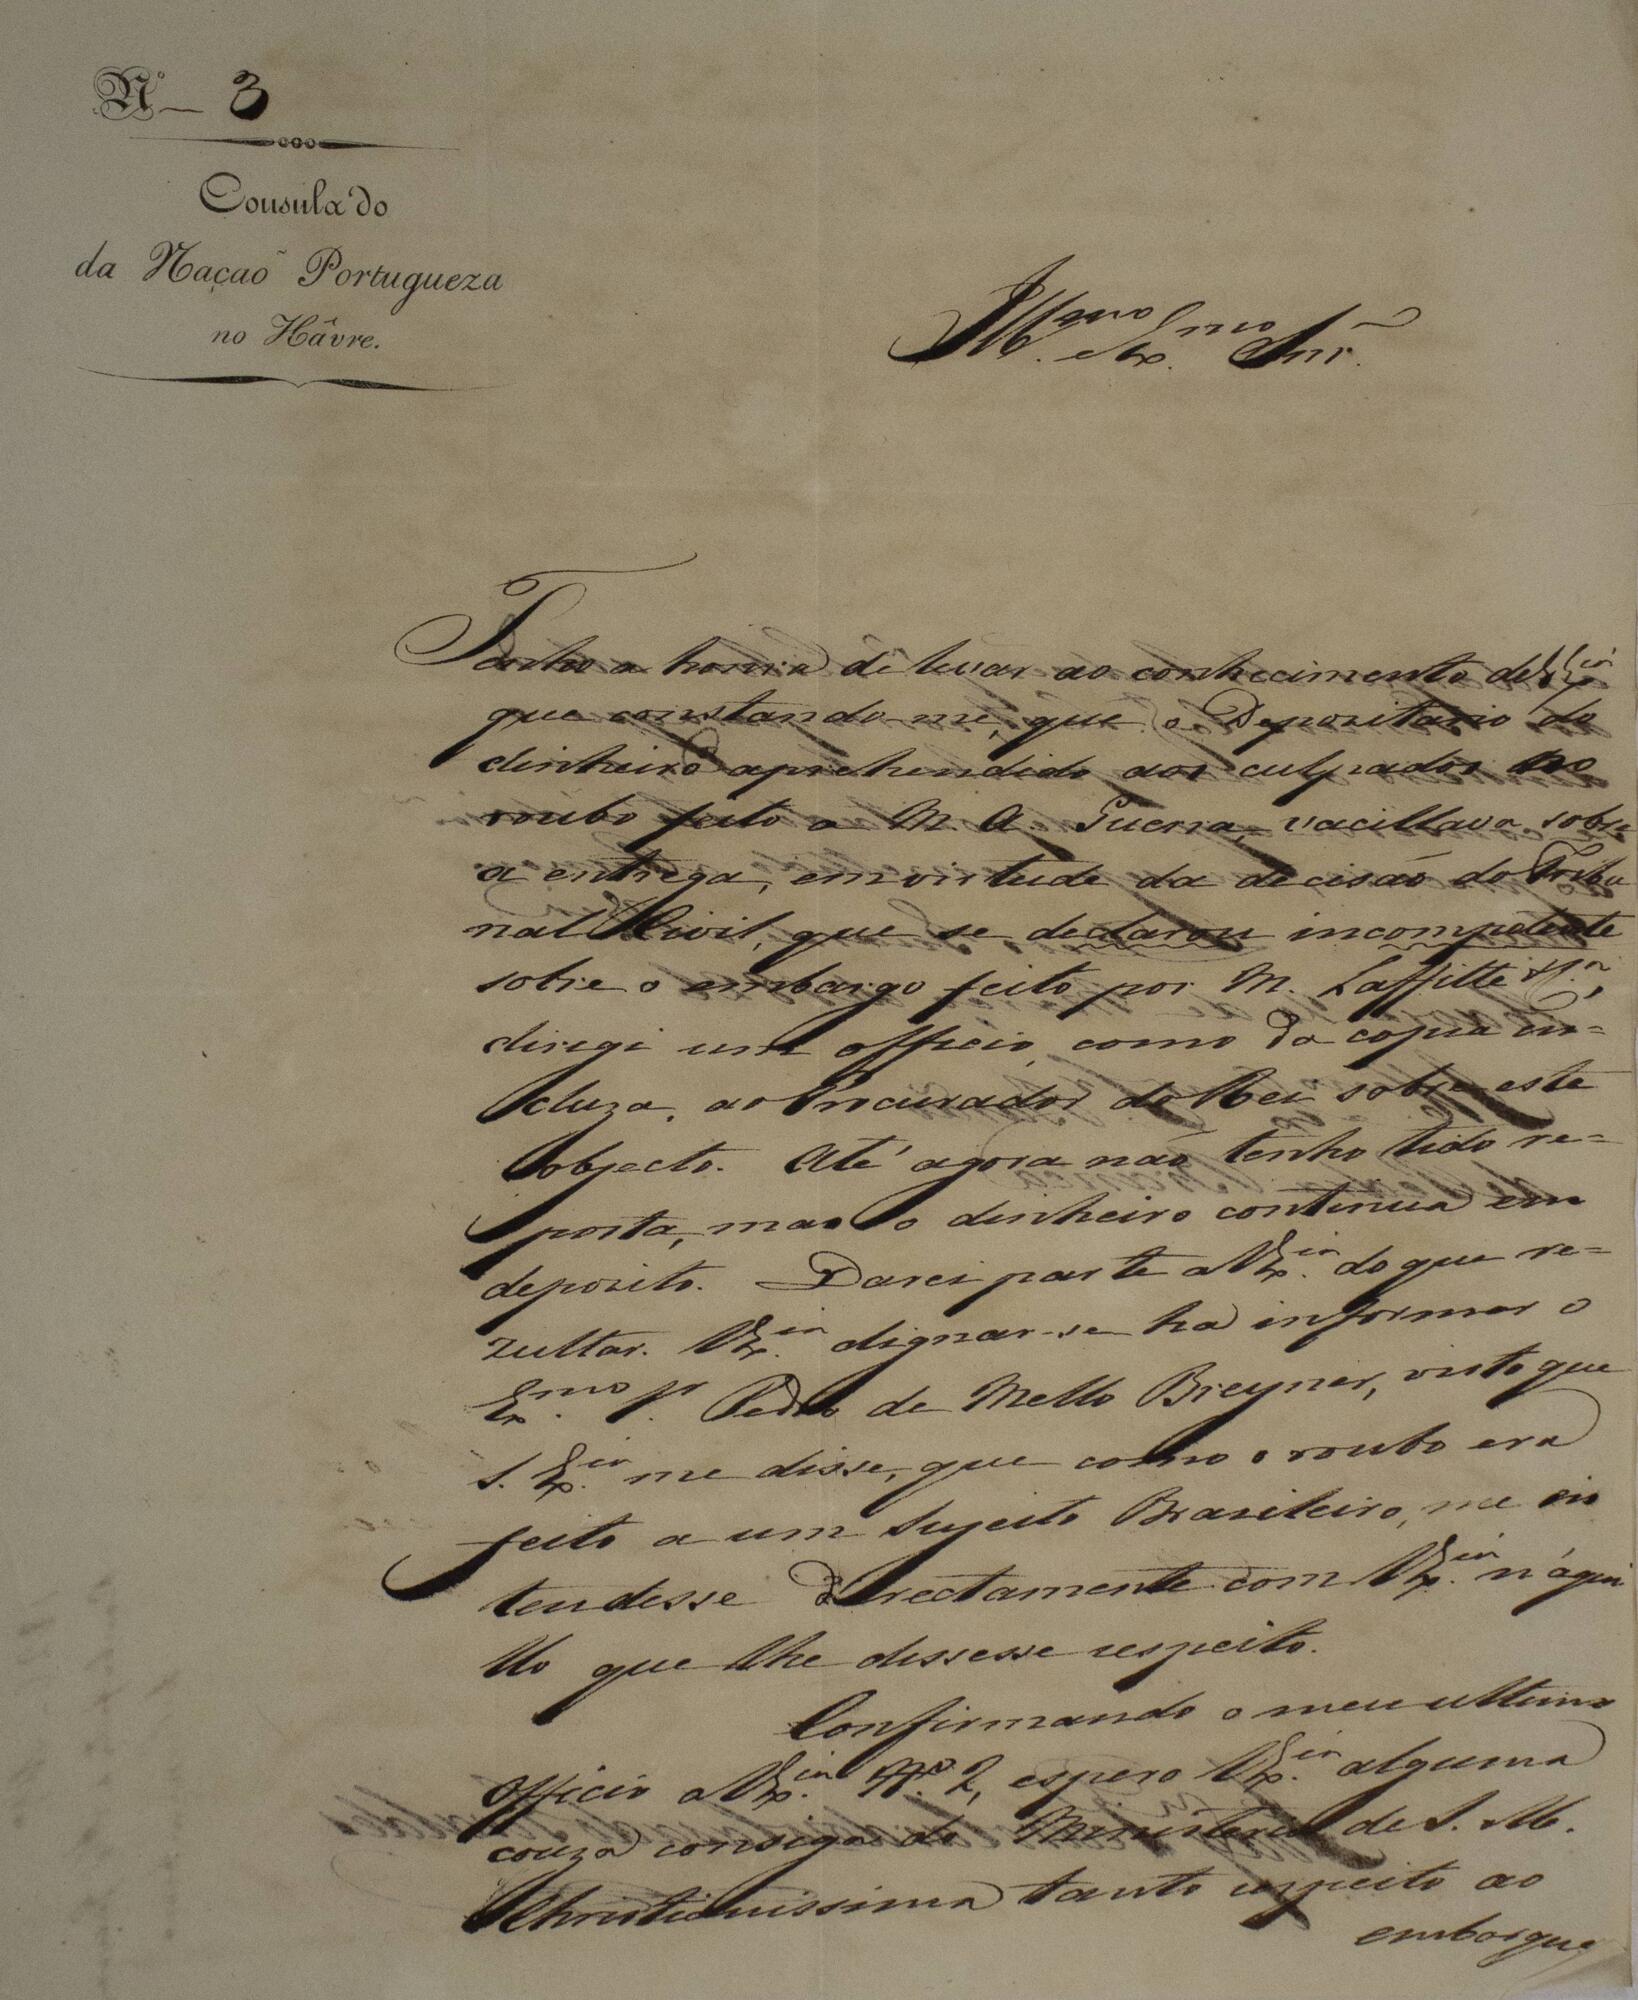 Nº 3
Consulado
da Nação Portugueza
no Hâvre.
Ill.mo Ex.mo Snr.
Tenho a honra de levar ao conhecimento de V Ex.cia
que constando-me, que o Depozitario do
dinheiro aprehendido aos culpados no
roubo feito a M. A. Guerra, vacillava sobre
a entrega, em virtude da decisão do Tribu
nal Civil, que se declarou incompetente
sobre o embargo feito por M. Laffitte & C.a,
dirigi um officio, como da copia in=
cluza, ao Procurador do Rei sobre este
objecto. Até agora não tenho tido re=
posta, mas o dinheiro continua em
depozito. Darei parte a V Ex.cia do que re=
zultar. V Ex.cia dignar-se ha informar o
Ex.mo Sr. Pedro de Mello Breyner, visto que
S. Ex.cia me disse, que como o roubo era
feito a um Sugeito Brazileiro, me in
tendesse directamente com V Ex.cia n'aqui
llo que lhe dissesse respeito.
Confirmando o meu ultimo
Officio a V Ex.cia Nº. 2, espero V Ex.cia alguma
couza consiga do Ministerio de S. M.
Christianissima tanto respeito ao
embargue